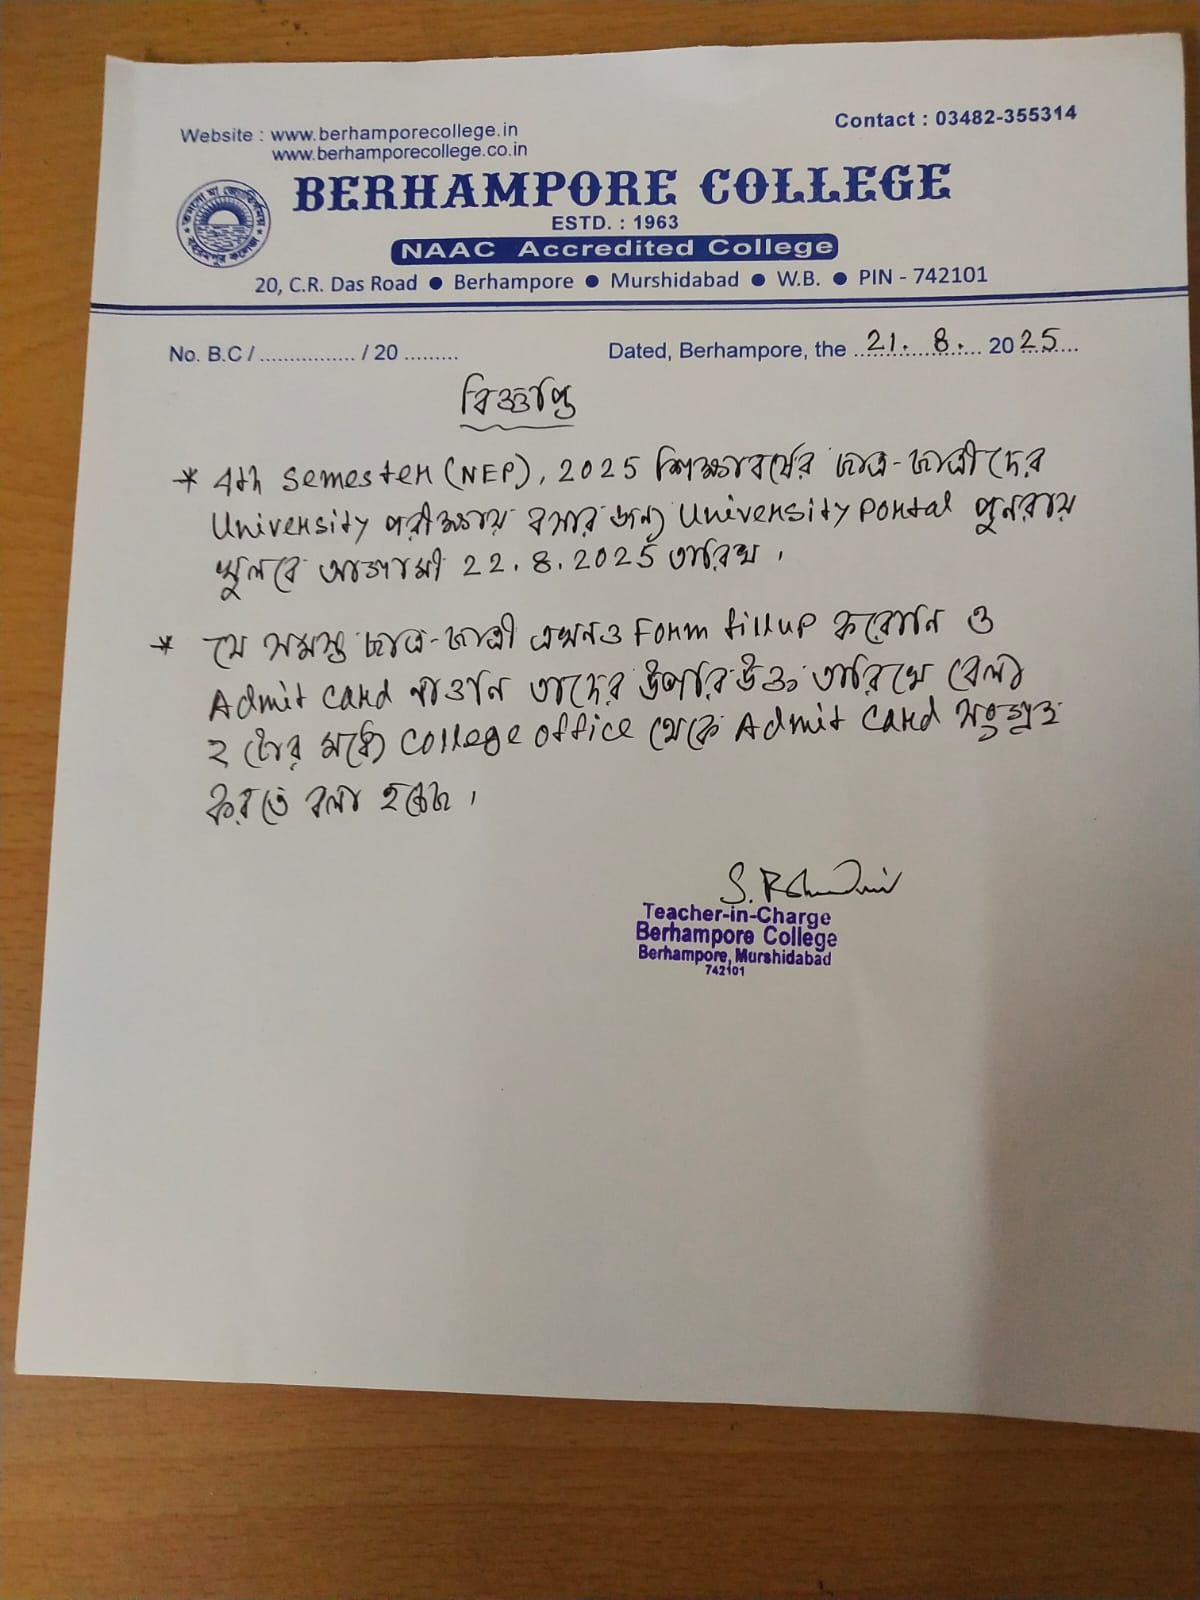 Website : www.berhamporecollege.in
www.berhamporecollege.co.in
Contact : 03482-355314
BERHAMPORE COLLEGE
ESTD. : 1963
NAAC Accredited College
20, C.R. Das Road ● Berhampore ● Murshidabad ● W.B. ● PIN - 742101
No. B.C / ................ / 20 .........
Dated, Berhampore, the 21. 8. 2025
বিজ্ঞপ্তি
* 4th Semester (NEP), 2025 শিক্ষাবর্ষের ছাত্র-ছাত্রীদের
University পরীক্ষায় বসার জন্য University Portal পুনরায়
খুলবে আগামী 22.8.2025 তারিখ।
* যে সমস্ত ছাত্র-ছাত্রী এখনও Form fillup করেনি ও
Admit Card পাওনি তাদের উপরিউক্ত তারিখে বেলা
২ টোর মধ্যে College office থেকে Admit Card সংগ্রহ
করতে বলা হচ্ছে।
Teacher-in-Charge
Berhampore College
Berhampore, Murshidabad
742101